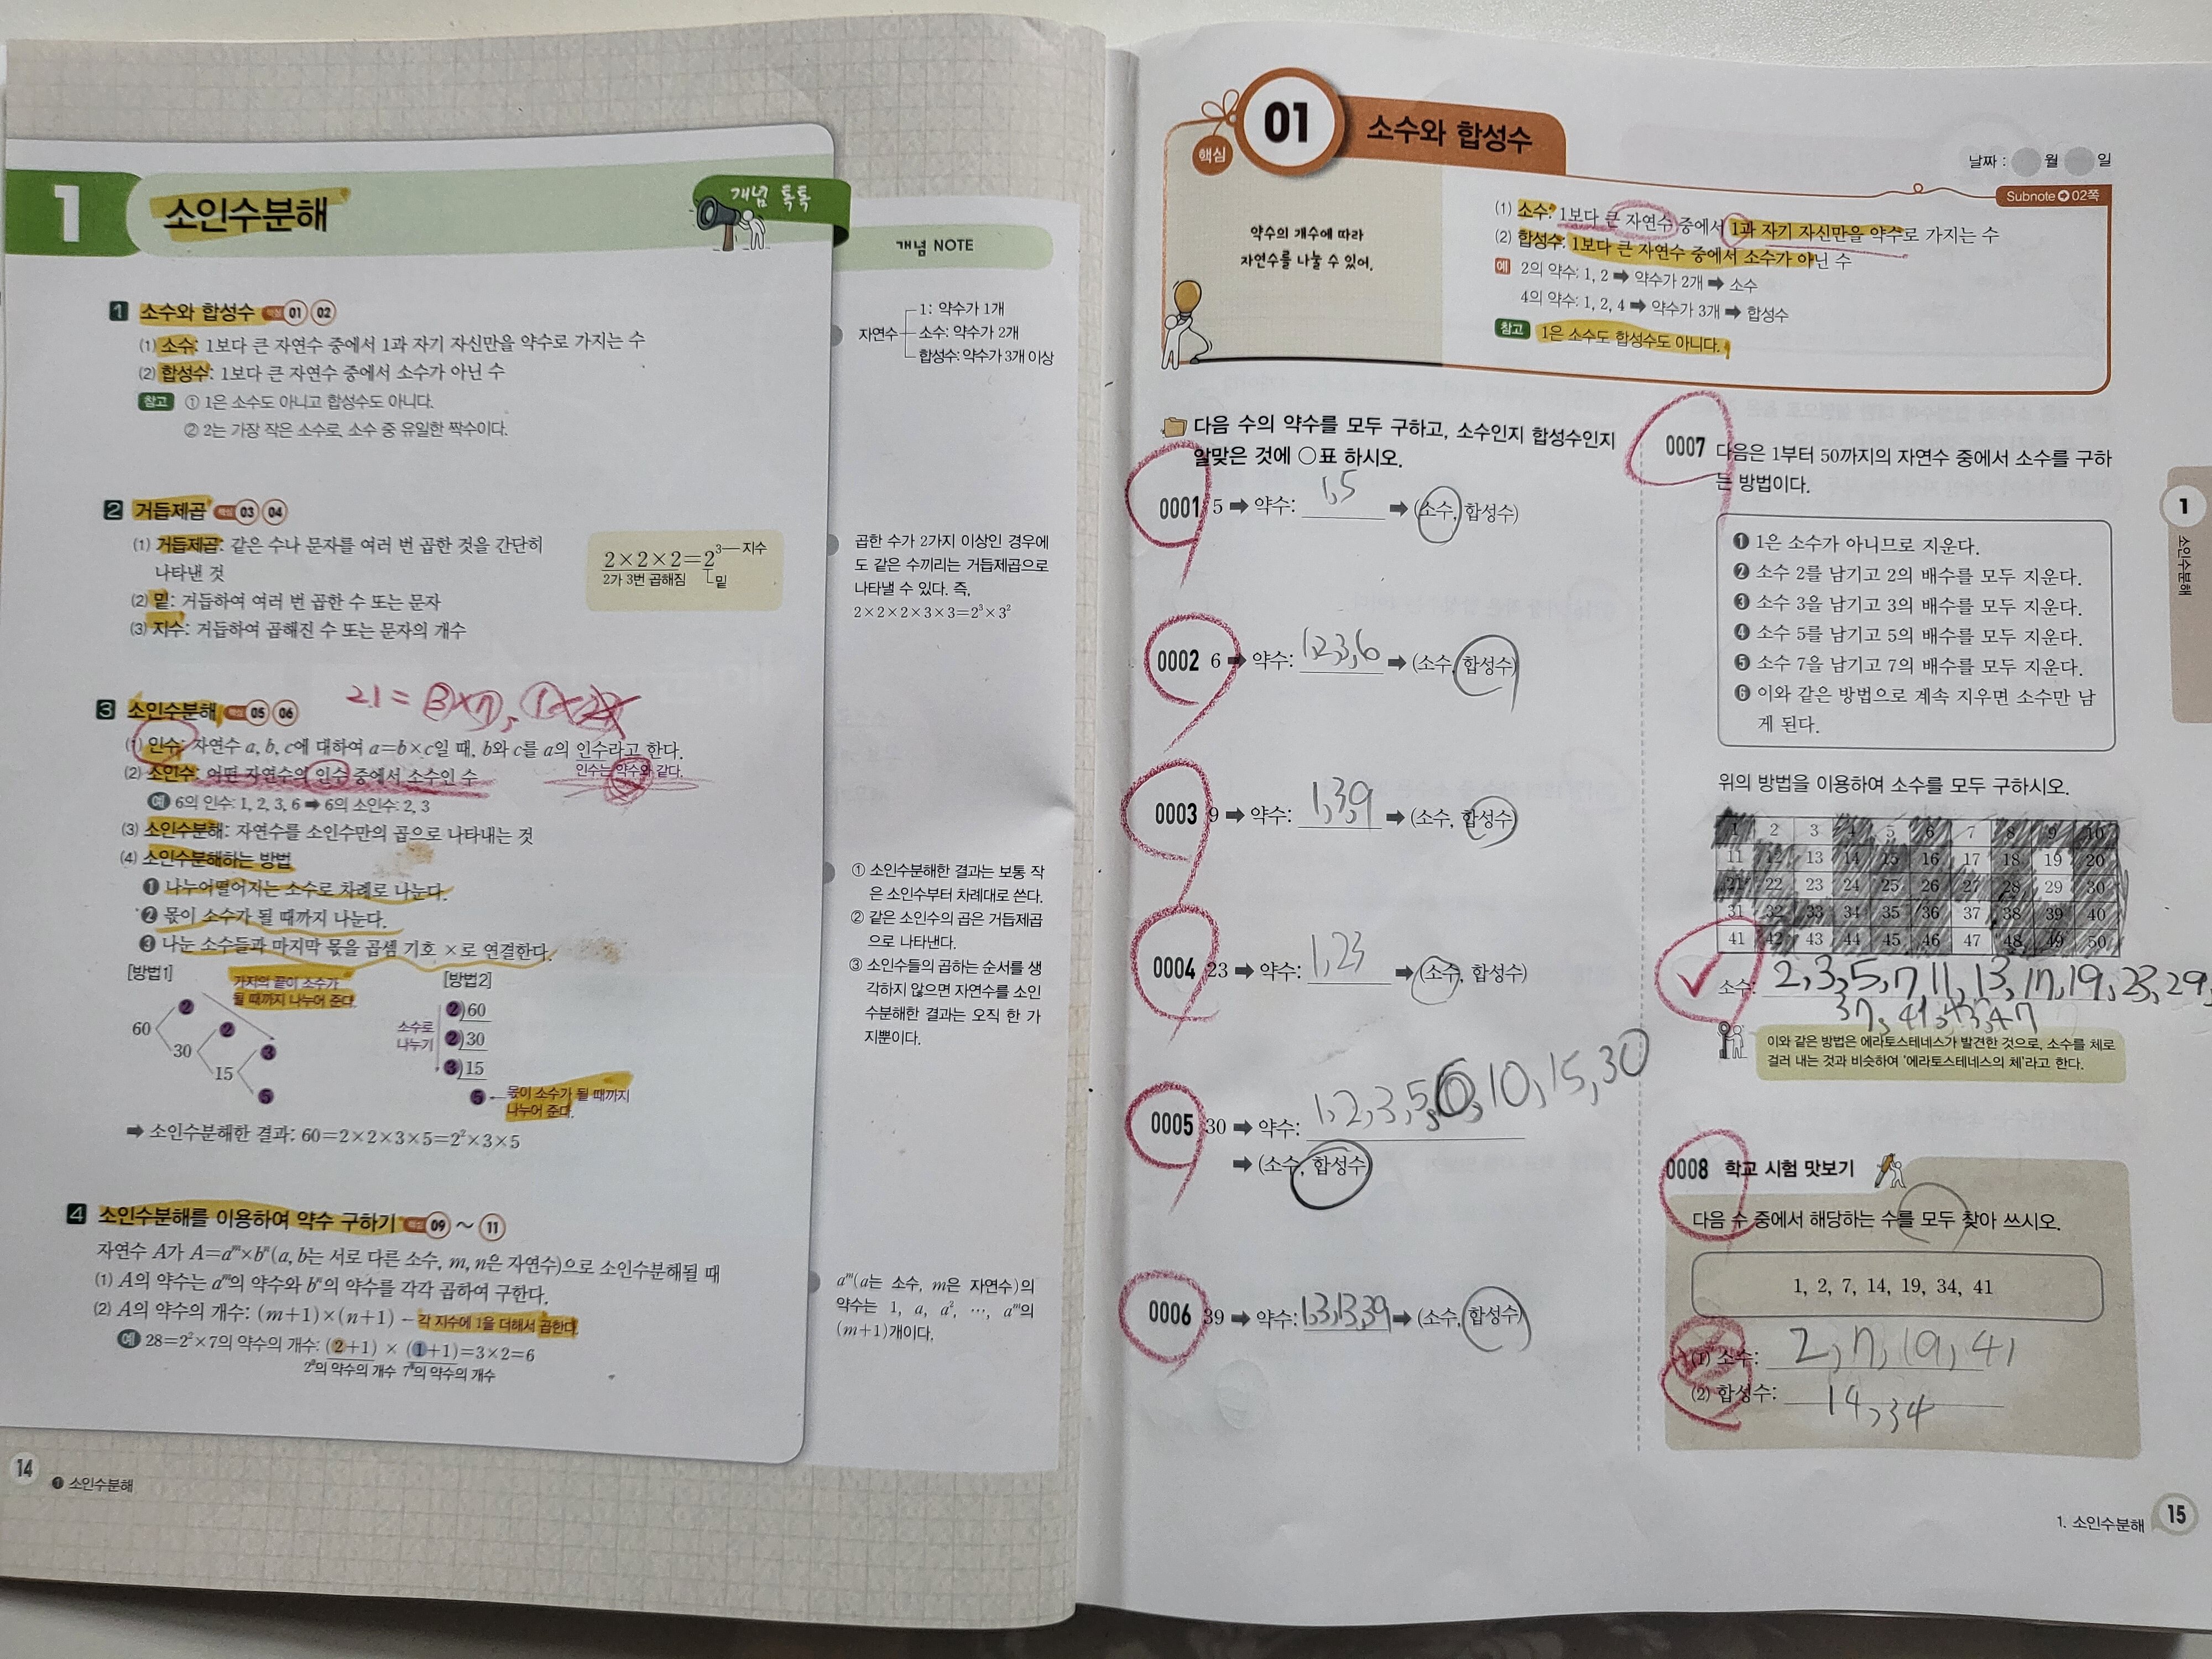 1 소인수분해
개념 톡톡
1 소수와 합성수 핵심 01 02
(1) 소수: 1보다 큰 자연수 중에서 1과 자기 자신만을 약수로 가지는 수
(2) 합성수: 1보다 큰 자연수 중에서 소수가 아닌 수
참고 ① 1은 소수도 아니고 합성수도 아니다.
② 2는 가장 작은 소수로, 소수 중 유일한 짝수이다.
2 거듭제곱 핵심 03 04
(1) 거듭제곱: 같은 수나 문자를 여러 번 곱한 것을 간단히
나타낸 것
(2) 밑: 거듭하여 여러 번 곱한 수 또는 문자
(3) 지수: 거듭하여 곱해진 수 또는 문자의 개수
2×2×2=2³ 지수
2가 3번 곱해짐 밑
21 = 3×7,
3 소인수분해 핵심 05 06
(1) 인수: 자연수 a, b, c에 대하여 a=b×c일 때, b와 c를 a의 인수라고 한다.
인수는 약수와 같다.
(2) 소인수: 어떤 자연수의 인수 중에서 소수인 수
예 6의 인수: 1, 2, 3, 6 ➡ 6의 소인수: 2, 3
(3) 소인수분해: 자연수를 소인수만의 곱으로 나타내는 것
(4) 소인수분해하는 방법
❶ 나누어떨어지는 소수로 차례로 나눈다.
❷ 몫이 소수가 될 때까지 나눈다.
❸ 나눈 소수들과 마지막 몫을 곱셈 기호 ×로 연결한다.
[방법1]
가지의 끝이 소수가
될 때까지 나누어 준다.
60
2
30
2
15
3
5
[방법2]
소수로
나누기
2)60
2)30
3)15
5
몫이 소수가 될 때까지
나누어 준다.
➡ 소인수분해한 결과: 60=2×2×3×5=2²×3×5
4 소인수분해를 이용하여 약수 구하기 핵심 09 ~ 11
자연수 A가 A=aᵐ×bⁿ(a, b는 서로 다른 소수, m, n은 자연수)으로 소인수분해될 때
(1) A의 약수는 aᵐ의 약수와 bⁿ의 약수를 각각 곱하여 구한다.
(2) A의 약수의 개수: (m+1)×(n+1) 각 지수에 1을 더해서 곱한다.
예 28=2²×7의 약수의 개수: (2+1) × (1+1)=3×2=6
2²의 약수의 개수 7¹의 약수의 개수
14 ❶ 소인수분해
개념 NOTE
자연수
1: 약수가 1개
소수: 약수가 2개
합성수: 약수가 3개 이상
곱한 수가 2가지 이상인 경우에
도 같은 수끼리는 거듭제곱으로
나타낼 수 있다. 즉,
2×2×2×3×3=2³×3²
① 소인수분해한 결과는 보통 작
은 소인수부터 차례대로 쓴다.
② 같은 소인수의 곱은 거듭제곱
으로 나타낸다.
③ 소인수들의 곱하는 순서를 생
각하지 않으면 자연수를 소인
수분해한 결과는 오직 한 가
지뿐이다.
aᵐ(a는 소수, m은 자연수)의
약수는 1, a, a², ⋯, aᵐ의
(m+1)개이다.
핵심 01 소수와 합성수
날짜 : 월 일
Subnote 02쪽
약수의 개수에 따라
자연수를 나눌 수 있어.
(1) 소수: 1보다 큰 자연수 중에서 1과 자기 자신만을 약수로 가지는 수
(2) 합성수: 1보다 큰 자연수 중에서 소수가 아닌 수
예 2의 약수: 1, 2 ➡ 약수가 2개 ➡ 소수
4의 약수: 1, 2, 4 ➡ 약수가 3개 ➡ 합성수
참고 1은 소수도 합성수도 아니다.
다음 수의 약수를 모두 구하고, 소수인지 합성수인지
알맞은 것에 ○표 하시오.
0001 5 ➡ 약수: 1,5 ➡ (소수, 합성수)
0002 6 ➡ 약수: 1,2,3,6 ➡ (소수, 합성수)
0003 9 ➡ 약수: 1,3,9 ➡ (소수, 합성수)
0004 23 ➡ 약수: 1,23 ➡ (소수, 합성수)
0005 30 ➡ 약수: 1,2,3,5,6,10,15,30
➡ (소수, 합성수)
0006 39 ➡ 약수: 1,3,13,39 ➡ (소수, 합성수)
0007 다음은 1부터 50까지의 자연수 중에서 소수를 구하
는 방법이다.
❶ 1은 소수가 아니므로 지운다.
❷ 소수 2를 남기고 2의 배수를 모두 지운다.
❸ 소수 3을 남기고 3의 배수를 모두 지운다.
❹ 소수 5를 남기고 5의 배수를 모두 지운다.
❺ 소수 7을 남기고 7의 배수를 모두 지운다.
❻ 이와 같은 방법으로 계속 지우면 소수만 남
게 된다.
위의 방법을 이용하여 소수를 모두 구하시오.
1 2 3 4 5 6 7 8 9 10
11 12 13 14 15 16 17 18 19 20
21 22 23 24 25 26 27 28 29 30
31 32 33 34 35 36 37 38 39 40
41 42 43 44 45 46 47 48 49 50
소수: 2,3,5,7,11,13,17,19,23,29,
37,41,43,47
이와 같은 방법은 에라토스테네스가 발견한 것으로, 소수를 체로
걸러 내는 것과 비슷하여 '에라토스테네스의 체'라고 한다.
0008 학교 시험 맛보기
다음 수 중에서 해당하는 수를 모두 찾아 쓰시오.
1, 2, 7, 14, 19, 34, 41
(1) 소수: 2,7,19,41
(2) 합성수: 14,34
1
소인수분해
1. 소인수분해 15